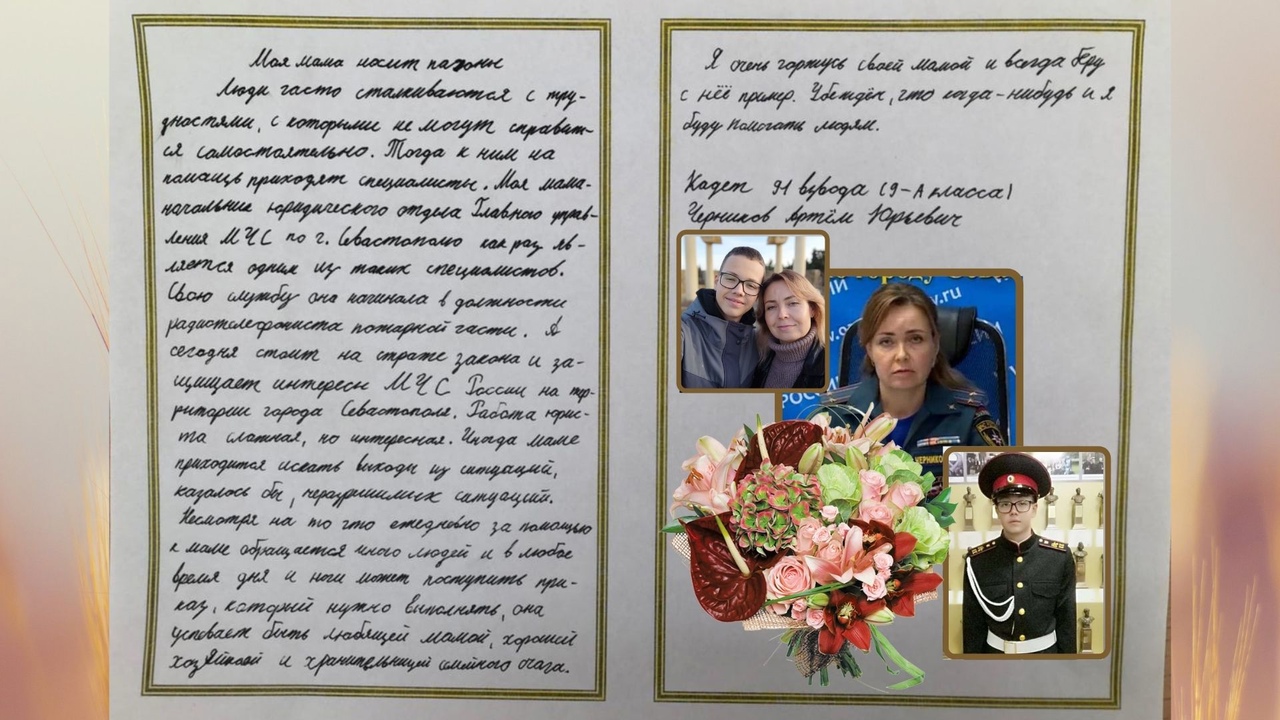 Моя мама носит пагоны
Люди часто сталкиваются с тру-
дностями, с которыми не могут справит-
ся самостоятельно. Тогда к ним на
помощь приходят специалисты. Моя мама-
начальник юридического отдела Главного управ-
ления МЧС по г. Севастополю как раз яв-
ляется одним из таких специалистов.
Свою службу она начинала в должности
радиотелефониста пожарной части. А
сегодня стоит на страже закона и за-
щищает интересы МЧС России на тер-
ритории города Севастополя. Работа юрис-
та сложная, но интересная. Иногда маме
приходится искать выходы из ситуаций,
казалось бы, неразрешимых ситуаций.
Несмотря на то что ежедневно за помощью
к маме обращается много людей и в любое
время дня и ночи может поступить при-
каз, который нужно выполнять, она
успевает быть любящей мамой, хорошей
хозяйкой и хранительницей семейного очага.
Я очень горжусь своей мамой и всегда беру
с неё пример. Убеждён, что когда-нибудь и я
буду помогать людям.
Кадет 91 взвода (9-А класса)
Черников Артём Юрьевич
городу
v.ru
РОССИИ
ЧЕРНИКО